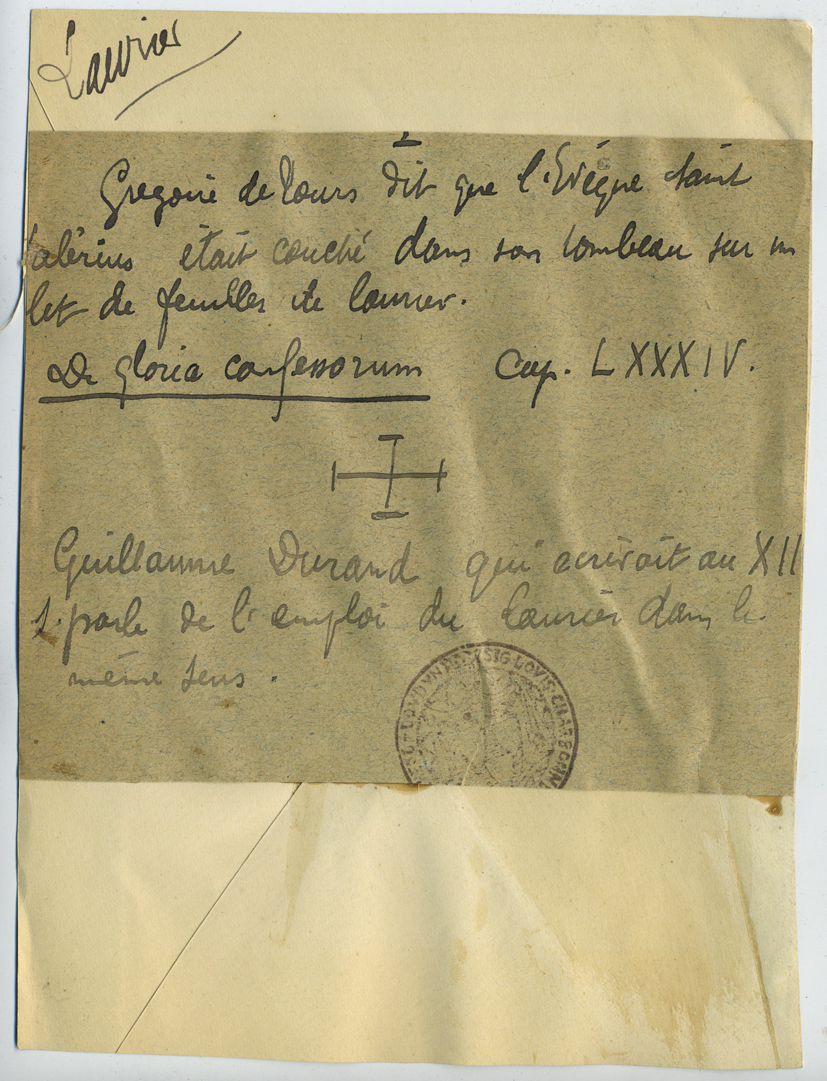 Laurier
Grégoire de Tours dit que l'Evêque saint
Valérius était couché dans son tombeau sur un
let de feuilles de laurier.
De gloria confessorum Cap. LXXXIV.
Guillaume Durand qui écrivait au XII
s. parle de l'emploi du laurier dans le
même sens.
SIG LOVIS CHARBONN